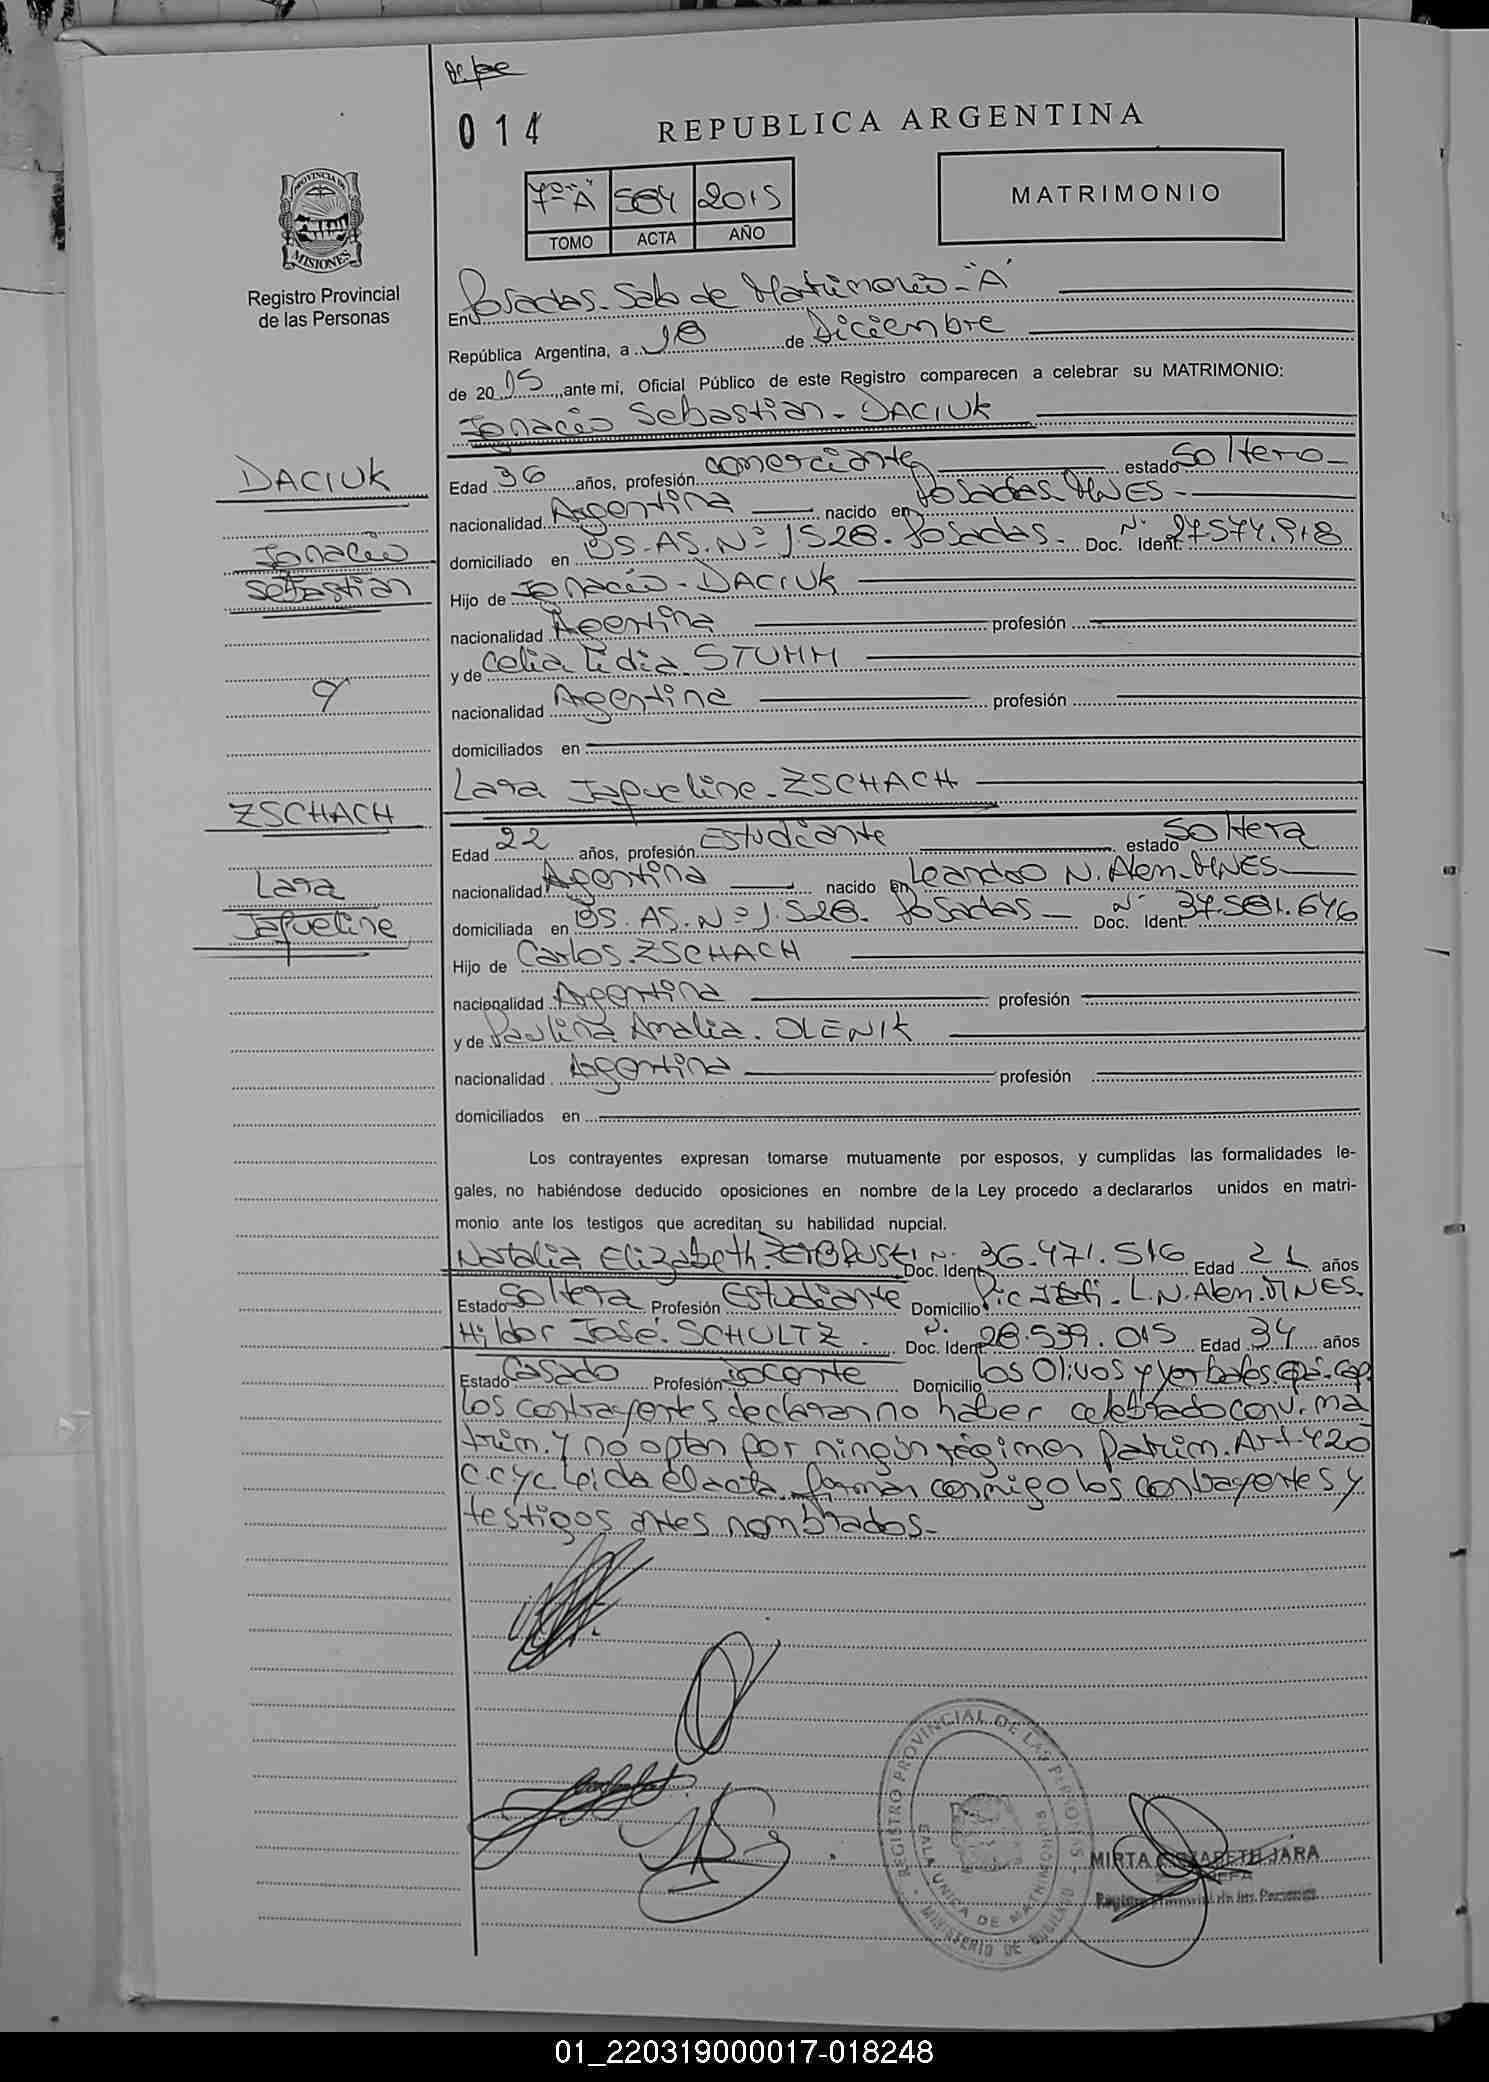 014
REPUBLICA ARGENTINA
PROVINCIA DE
MISIONES
Registro Provincial
de las Personas
7º "A" 584 2015
TOMO ACTA AÑO
MATRIMONIO
En Posadas - Sala de Matrimonio - "A"
República Argentina, a 18 de Diciembre
de 2015, ante mi, Oficial Público de este Registro comparecen a celebrar su MATRIMONIO:
Ignacio Sebastian - DACIUK
DACIUK
Ignacio
Sebastian
Edad 36 años, profesión comerciante estado Soltero -
nacionalidad Argentina nacido en Posadas MNES -
domiciliado en BS. AS. Nº 1528. Posadas - Doc. Ident. Nº 27.574.918
Hijo de Ignacio - DACIUK
nacionalidad Argentina profesión
y de Celia Lidia STUMM
nacionalidad Argentina profesión
domiciliados en
Lara Jaqueline - ZSCHACH
ZSCHACH
Lara
Jaqueline
Edad 22 años, profesión Estudiante estado Soltera
nacionalidad Argentina nacido en Leandro N. Alem - MNES
domiciliada en BS. AS. Nº 1.528. Posadas - Doc. Ident. Nº 37.581.646
Hijo de Carlos. ZSCHACH
nacionalidad Argentina profesión
y de Paulina Amalia. OLENIK
nacionalidad Argentina profesión
domiciliados en
Los contrayentes expresan tomarse mutuamente por esposos, y cumplidas las formalidades le-
gales, no habiéndose deducido oposiciones en nombre de la Ley procedo a declararlos unidos en matri-
monio ante los testigos que acreditan su habilidad nupcial.
Natalia Elizabeth. Doc. Ident. Nº 36.471.516 Edad 21 años
Estado Soltera Profesión Estudiante Domicilio L.N. Alem. MNES.
Hildor José. SCHULTZ. Doc. Ident. Nº 28.539.015 Edad 34 años
Estado Casado Profesión Docente Domicilio Los Olivos y Yerbales
Los contrayentes declaran no haber celebrado conv. ma
trim. y no optan por ningún régimen Patrim. Art. 420
C.C y C Leida el acta. firman conmigo los contrayentes y
testigos antes nombrados -
REGISTRO PROVINCIAL DE LAS PERSONAS
SALA UNICA DE MATRIMONIOS
MINISTERIO DE GOBIERNO
MIRTA ELIZABETH JARA
JEFA
Registro Provincial de las Personas
01_220319000017-018248